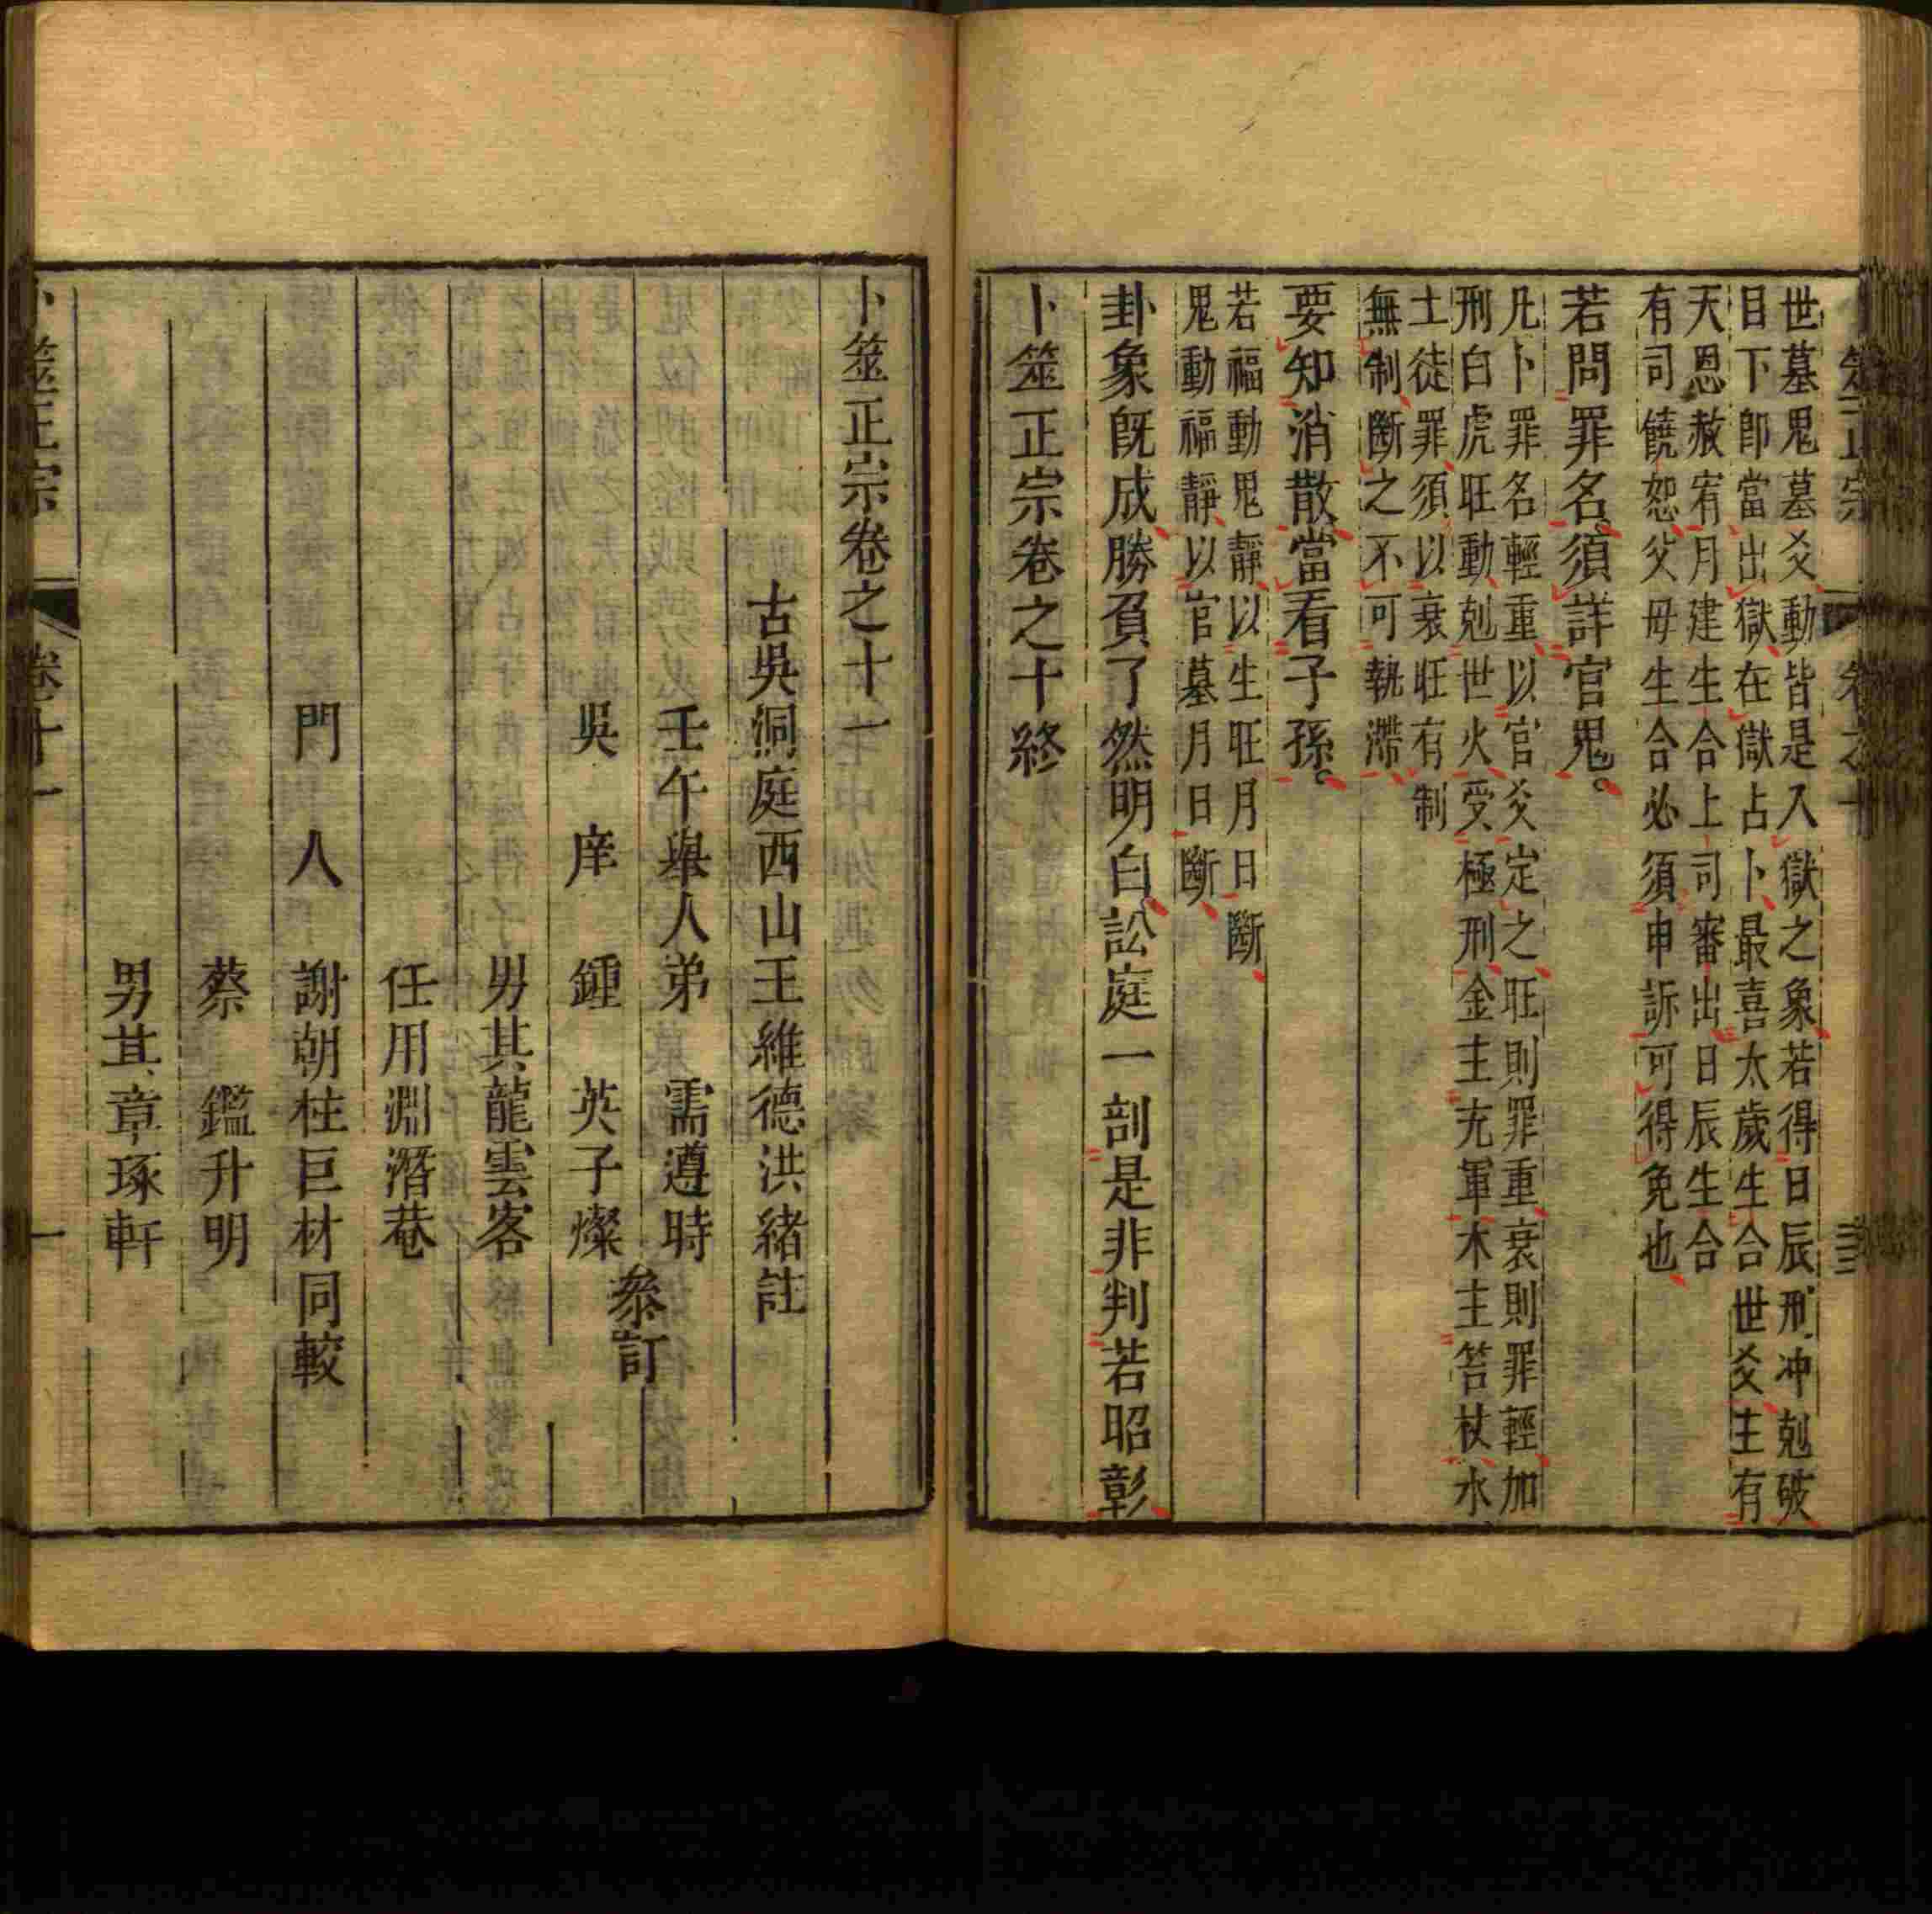 世墓鬼墓爻動皆是入獄之象若得日辰刑冲剋破
目下即當出獄在獄占卜最喜太歲生合世爻主有
天恩赦宥月建生合上司審出日辰生合
有司饒恕父母生合必須申訴可得免也
若問罪名須詳官鬼。
凡卜罪名輕重以官爻定之旺則罪重衰則罪輕加
刑白虎旺動剋世火受極刑金主充軍木主笞杖水
土徒罪須以衰旺有制
無制斷之不可執滯
要知消散當看子孫。
若福動鬼靜以生旺月日斷
鬼動福靜以官墓月日斷
卦象既成勝負了然明白訟庭一剖是非判若昭彰
卜筮正宗卷之十終
卜筮正宗卷之十一
古吳洞庭西山王維德洪緒註
壬午舉人弟 需遵時
吳 庠 鍾 英子燦
叅訂
男其龍雲客
任用淵潛菴
門 人 謝朝柱巨材同較
蔡 鑑升明
男其章琢軒
卜筮正宗 卷十一 一